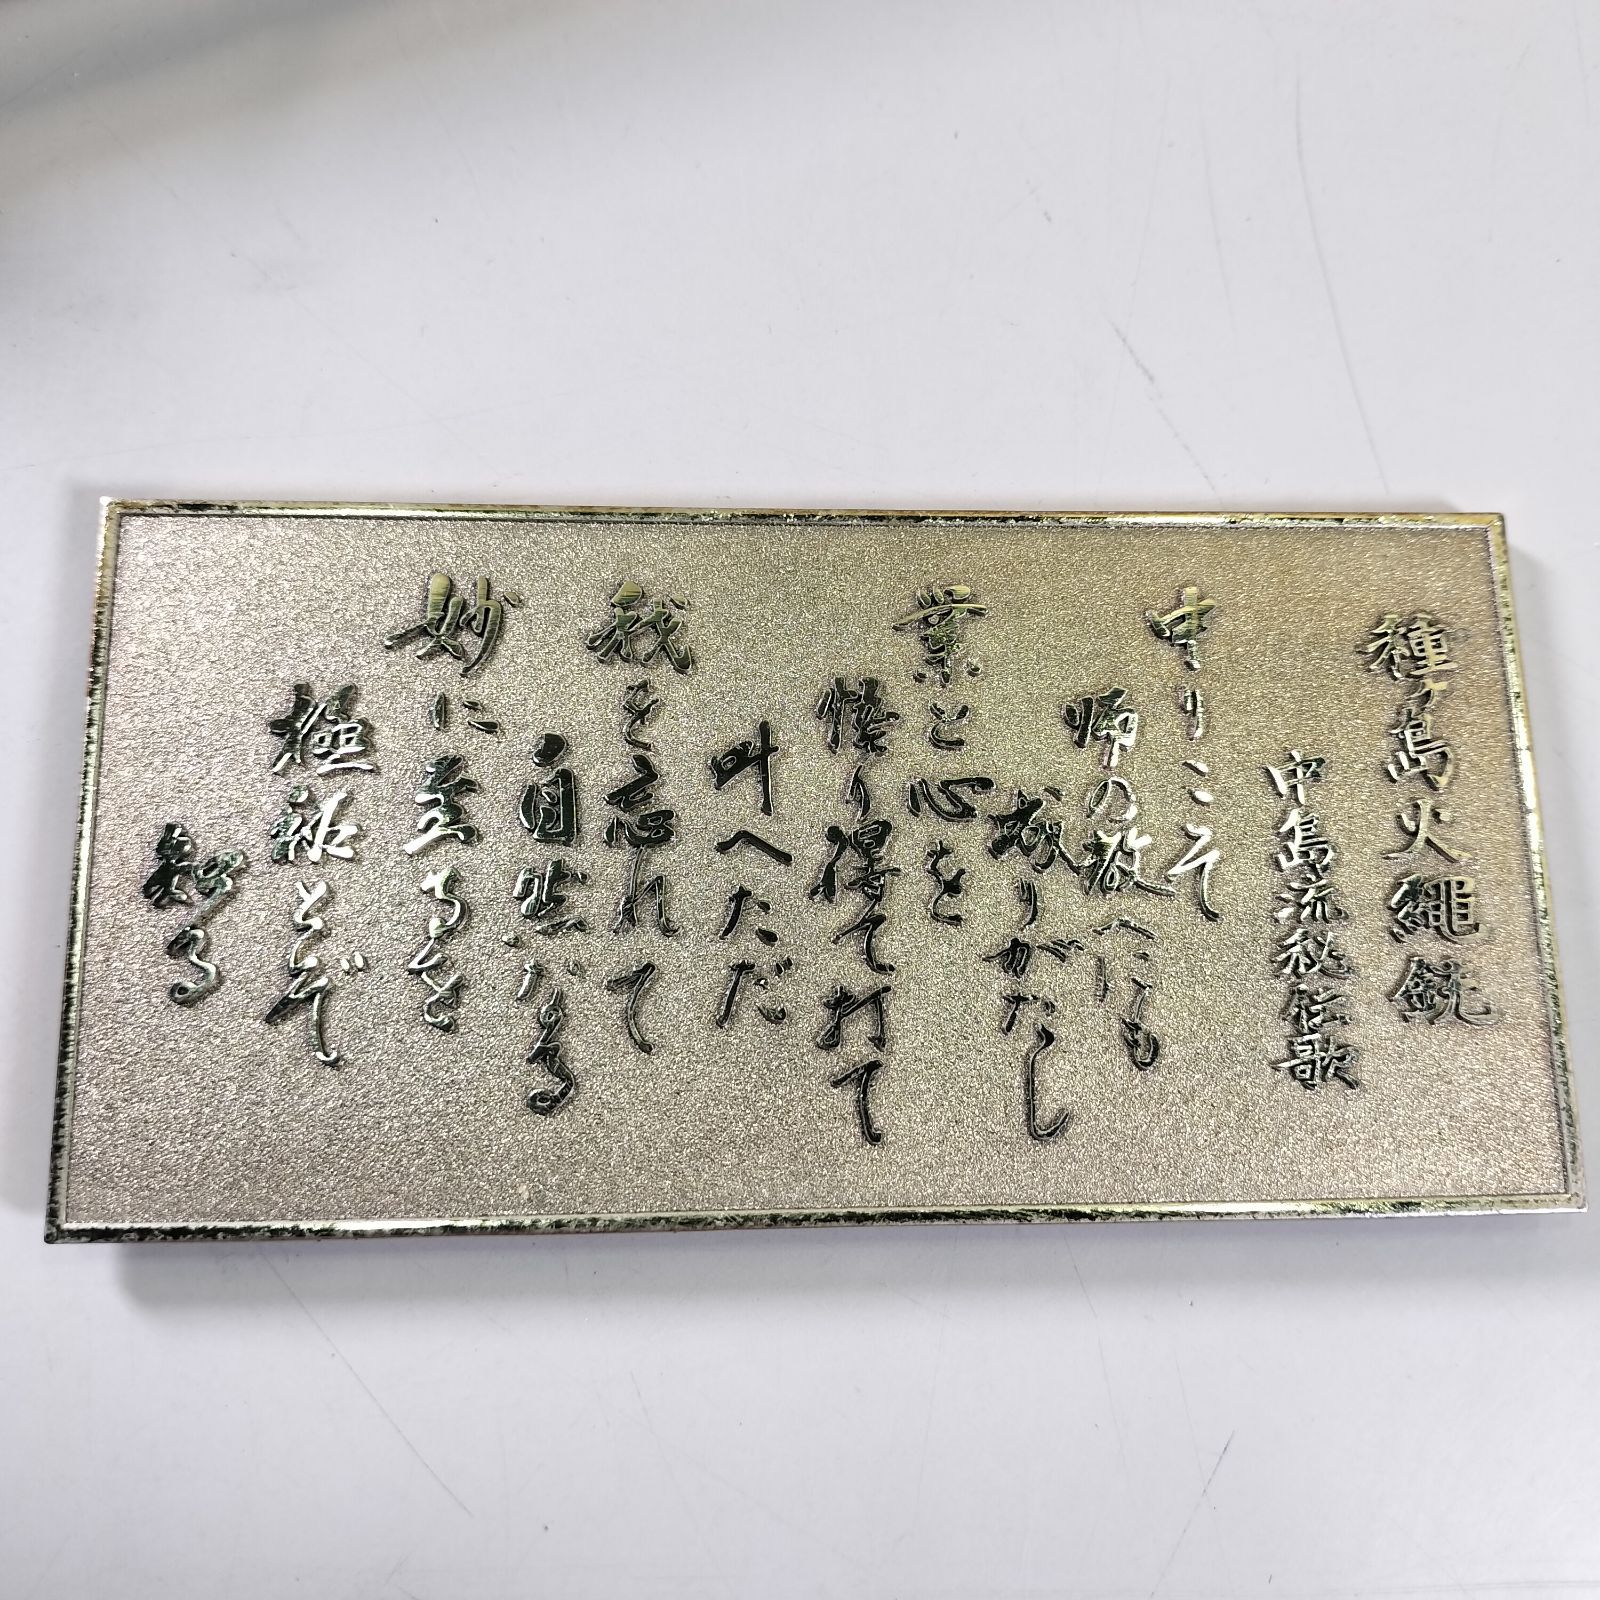 種ヶ島火繩銃
中島流秘伝歌
中りこそ
師の教へにも
成りがたし
業と心を
悟り得て打て
叶へただ
我を忘れて
自然なる
妙に至るを
極秘とぞ
知る